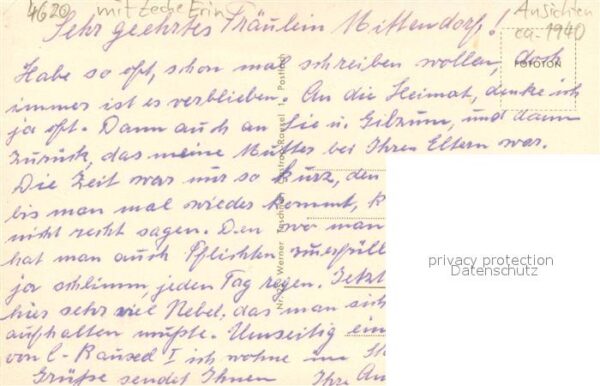 4620 mit Zeche Erin
Ansichten
ca. 1940
Sehr geehrtes Fräulein Mittendorf!
FOTOTON
Habe so oft, schon mal schreiben wollen, doch
immer ist es verblieben. An die Heimat, denke ich
ja oft. Dann auch an Sie u. Gilzum, und dann
zurück, das meine Mutter bei Ihren Eltern war.
Die Zeit war mir so kurz, den
bis man mal wieder kommt, k
nicht recht sagen. Den wo man
hat man auch Pflichten zuerfüll
ja schlimm, jeden Tag regen. Jetzt
hier sehr viel Nebel, das man sich
aufhalten mußte. Umseitig ein
von C-Rauxel I ich wohne im
Grüße sendet Ihnen Ihre An
Werner Castrop-Rauxel Postfach
privacy protection
Datenschutz